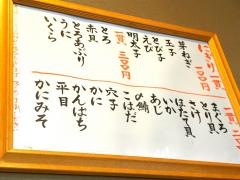 にぎり一貫 二〇〇円
芽ねぎ
玉子
とび子
えび
明太子
一貫 三〇〇円
とろ
赤貝
とろあぶり
うに
いくら
まぐろ
とり貝
さけ
ほたて貝
いか
〆鯖
あじ
こはだ
穴子
かに
かんぱち
平目
かにみそ